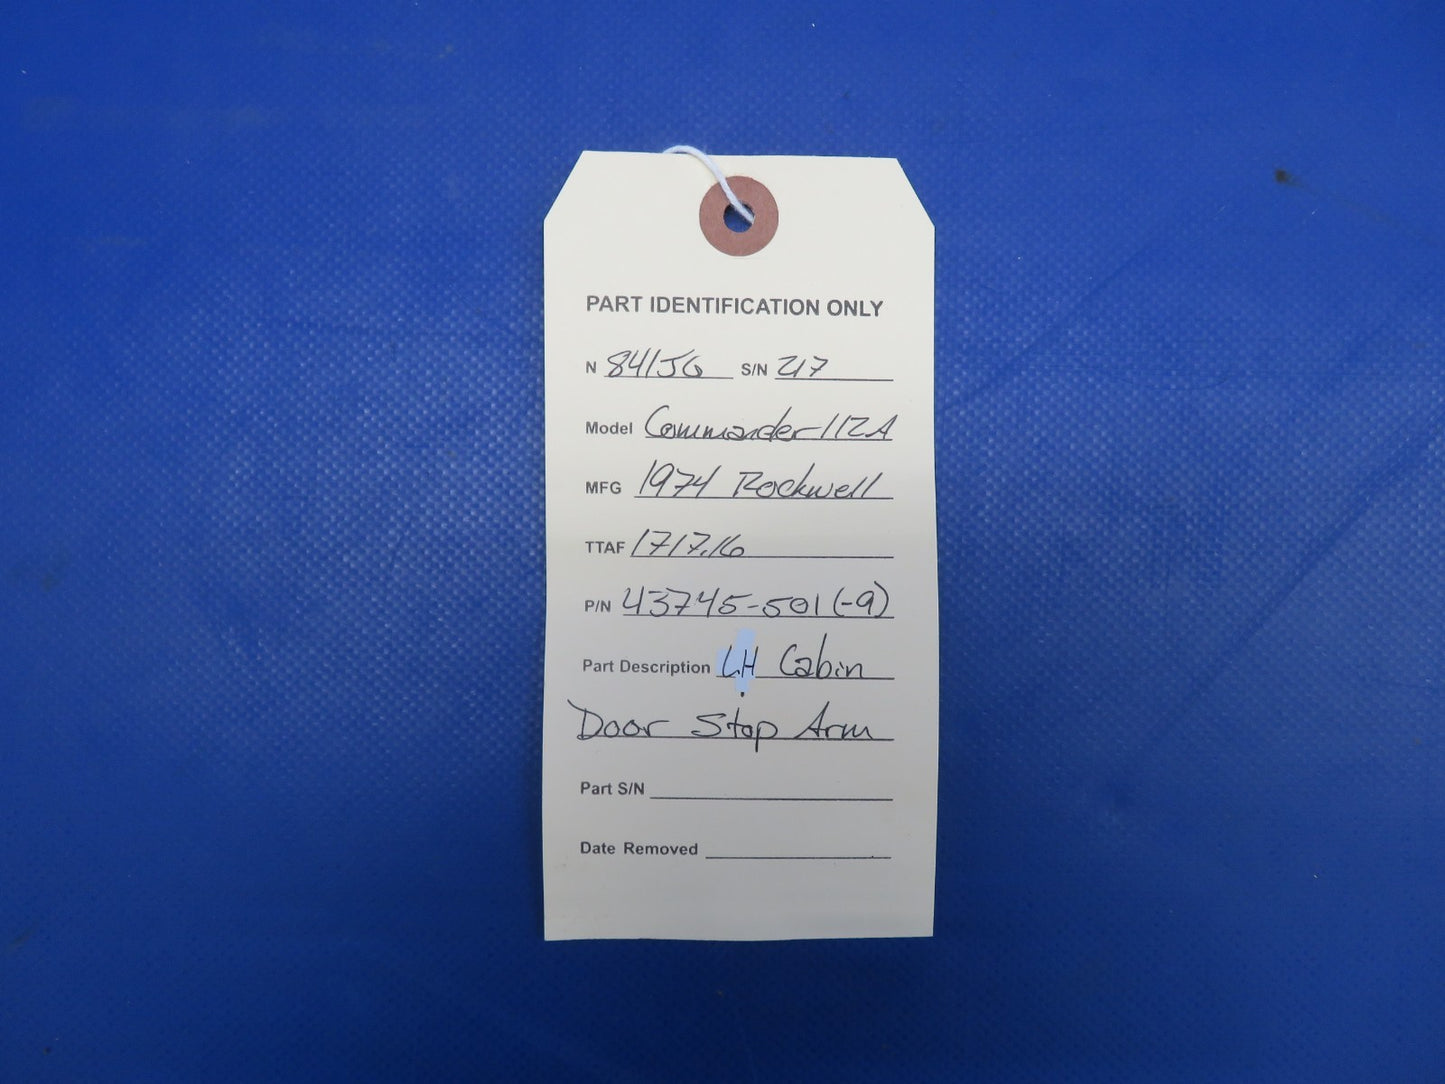 PART IDENTIFICATION ONLY
N 841JG S/N 217
Model Commander 112A
MFG 1974 Rockwell
TTAF 1717.16
P/N 43745-501 (-9)
Part Description LH Cabin
Door Stop Arm
Part S/N
Date Removed